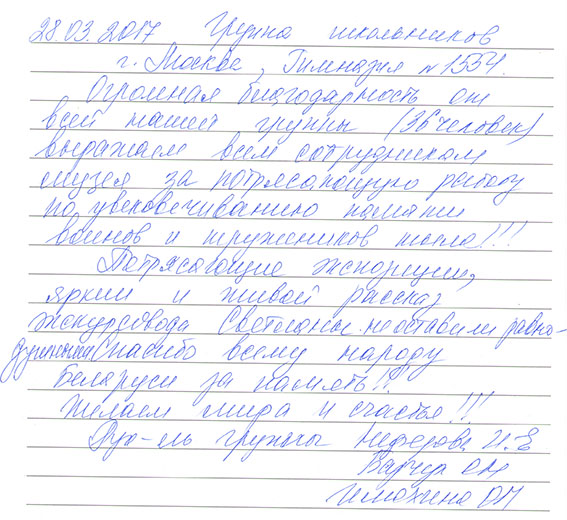 28.03.2017 Группа школьников
г. Москва, Гимназия №1554.
Огромная благодарность от
всей нашей группы (36 человек)
выражаем всем сотрудникам
музея за потрясающую работу
по увековечиванию памяти
воинов и тружеников тыла!!!
Потрясающие экспозиции,
яркий и живой рассказ
экскурсовода Светланы не оставили равно-
душными Спасибо всему народу
Беларуси за память!!
Желаем мира и счастья!!!
Рук-ль группы